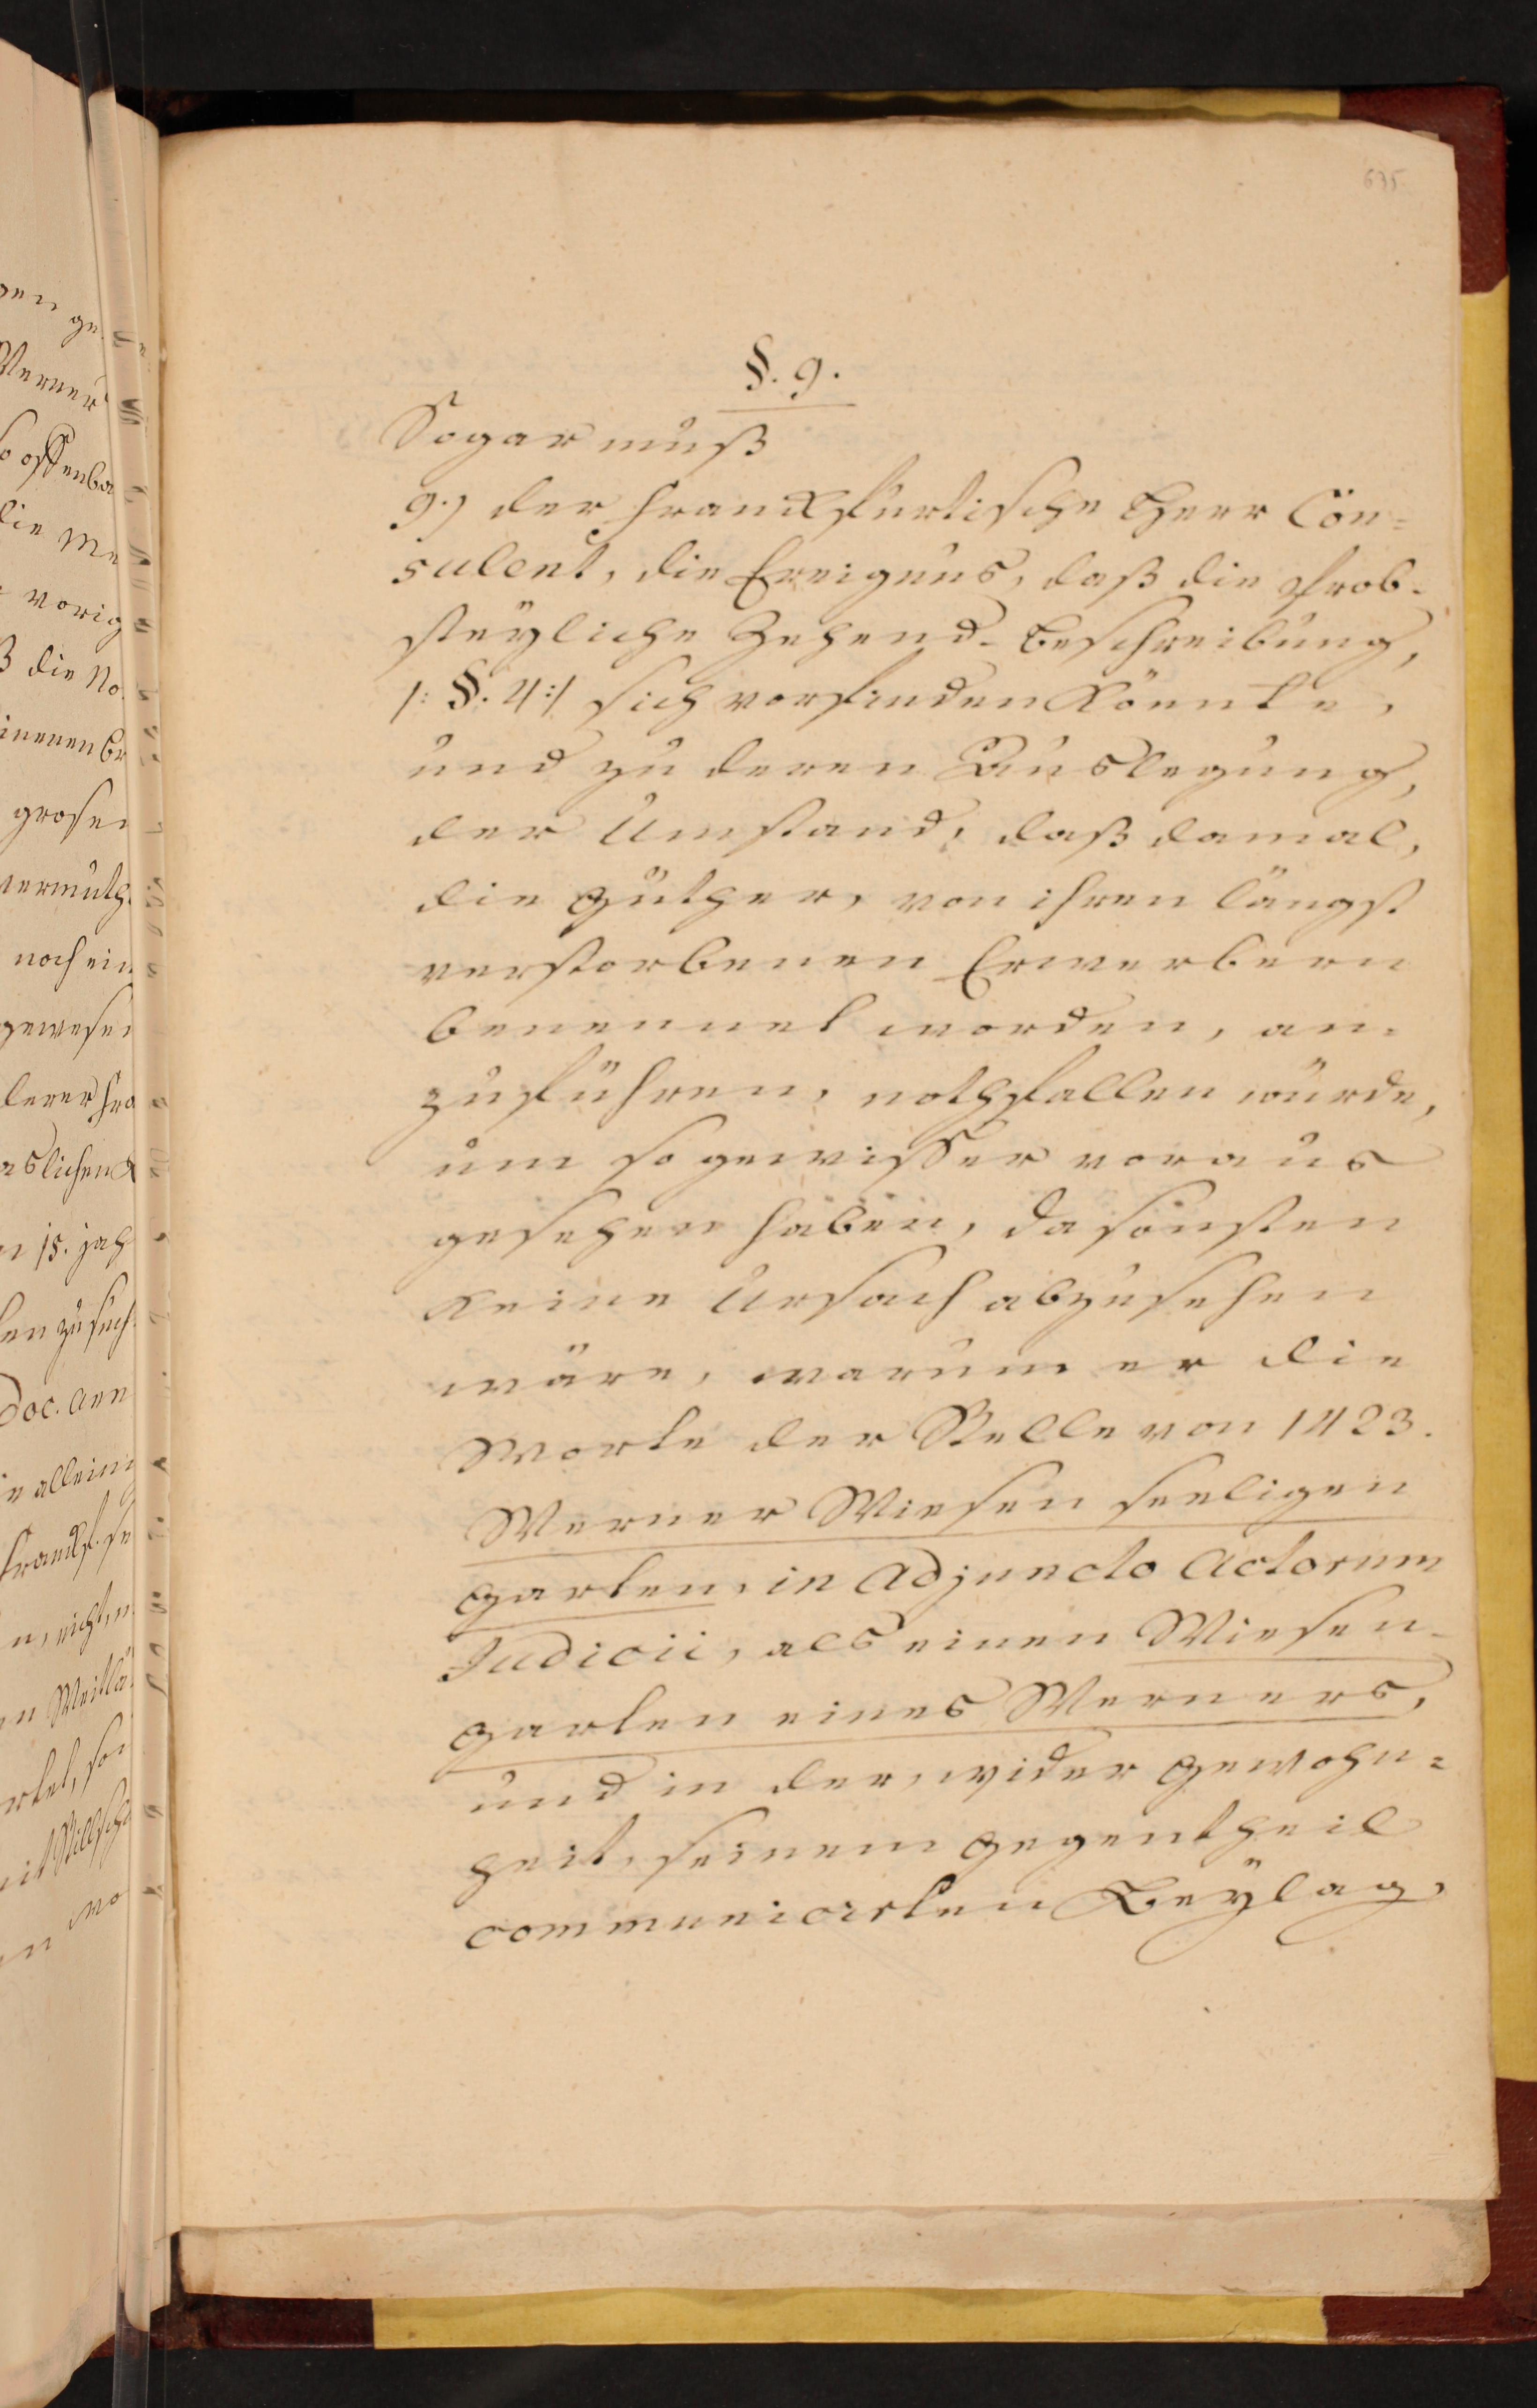 675
§. 9.
Sogar muß
9.) der Franckfurtische Herr Con=
sulent, die Ereignus, daß die Prob-
steyliche Zehend-Beschreibung,
/: §. 4 :/ sich vorfinden könnte,
und zu deren Auslegung,
der Umstand, daß damal,
die Güther, von ihren längst
verstorbenen Erwerbern
benennet worden, an-
zuführen, nothfallen würde,
um so gewisser voraus
gesehen haben, da sonsten
keine Ursach abzusehen
wäre, warum er die
Worte der Stelle von 1423.
Werner Wiesen seeligen
garten, in Adjuncto Actorum
Judicii, als einen Wiesen-
garten eines Werners,
und in der, wider Gewohn=
heit, seinem Gegentheil
communicirten Beylag,